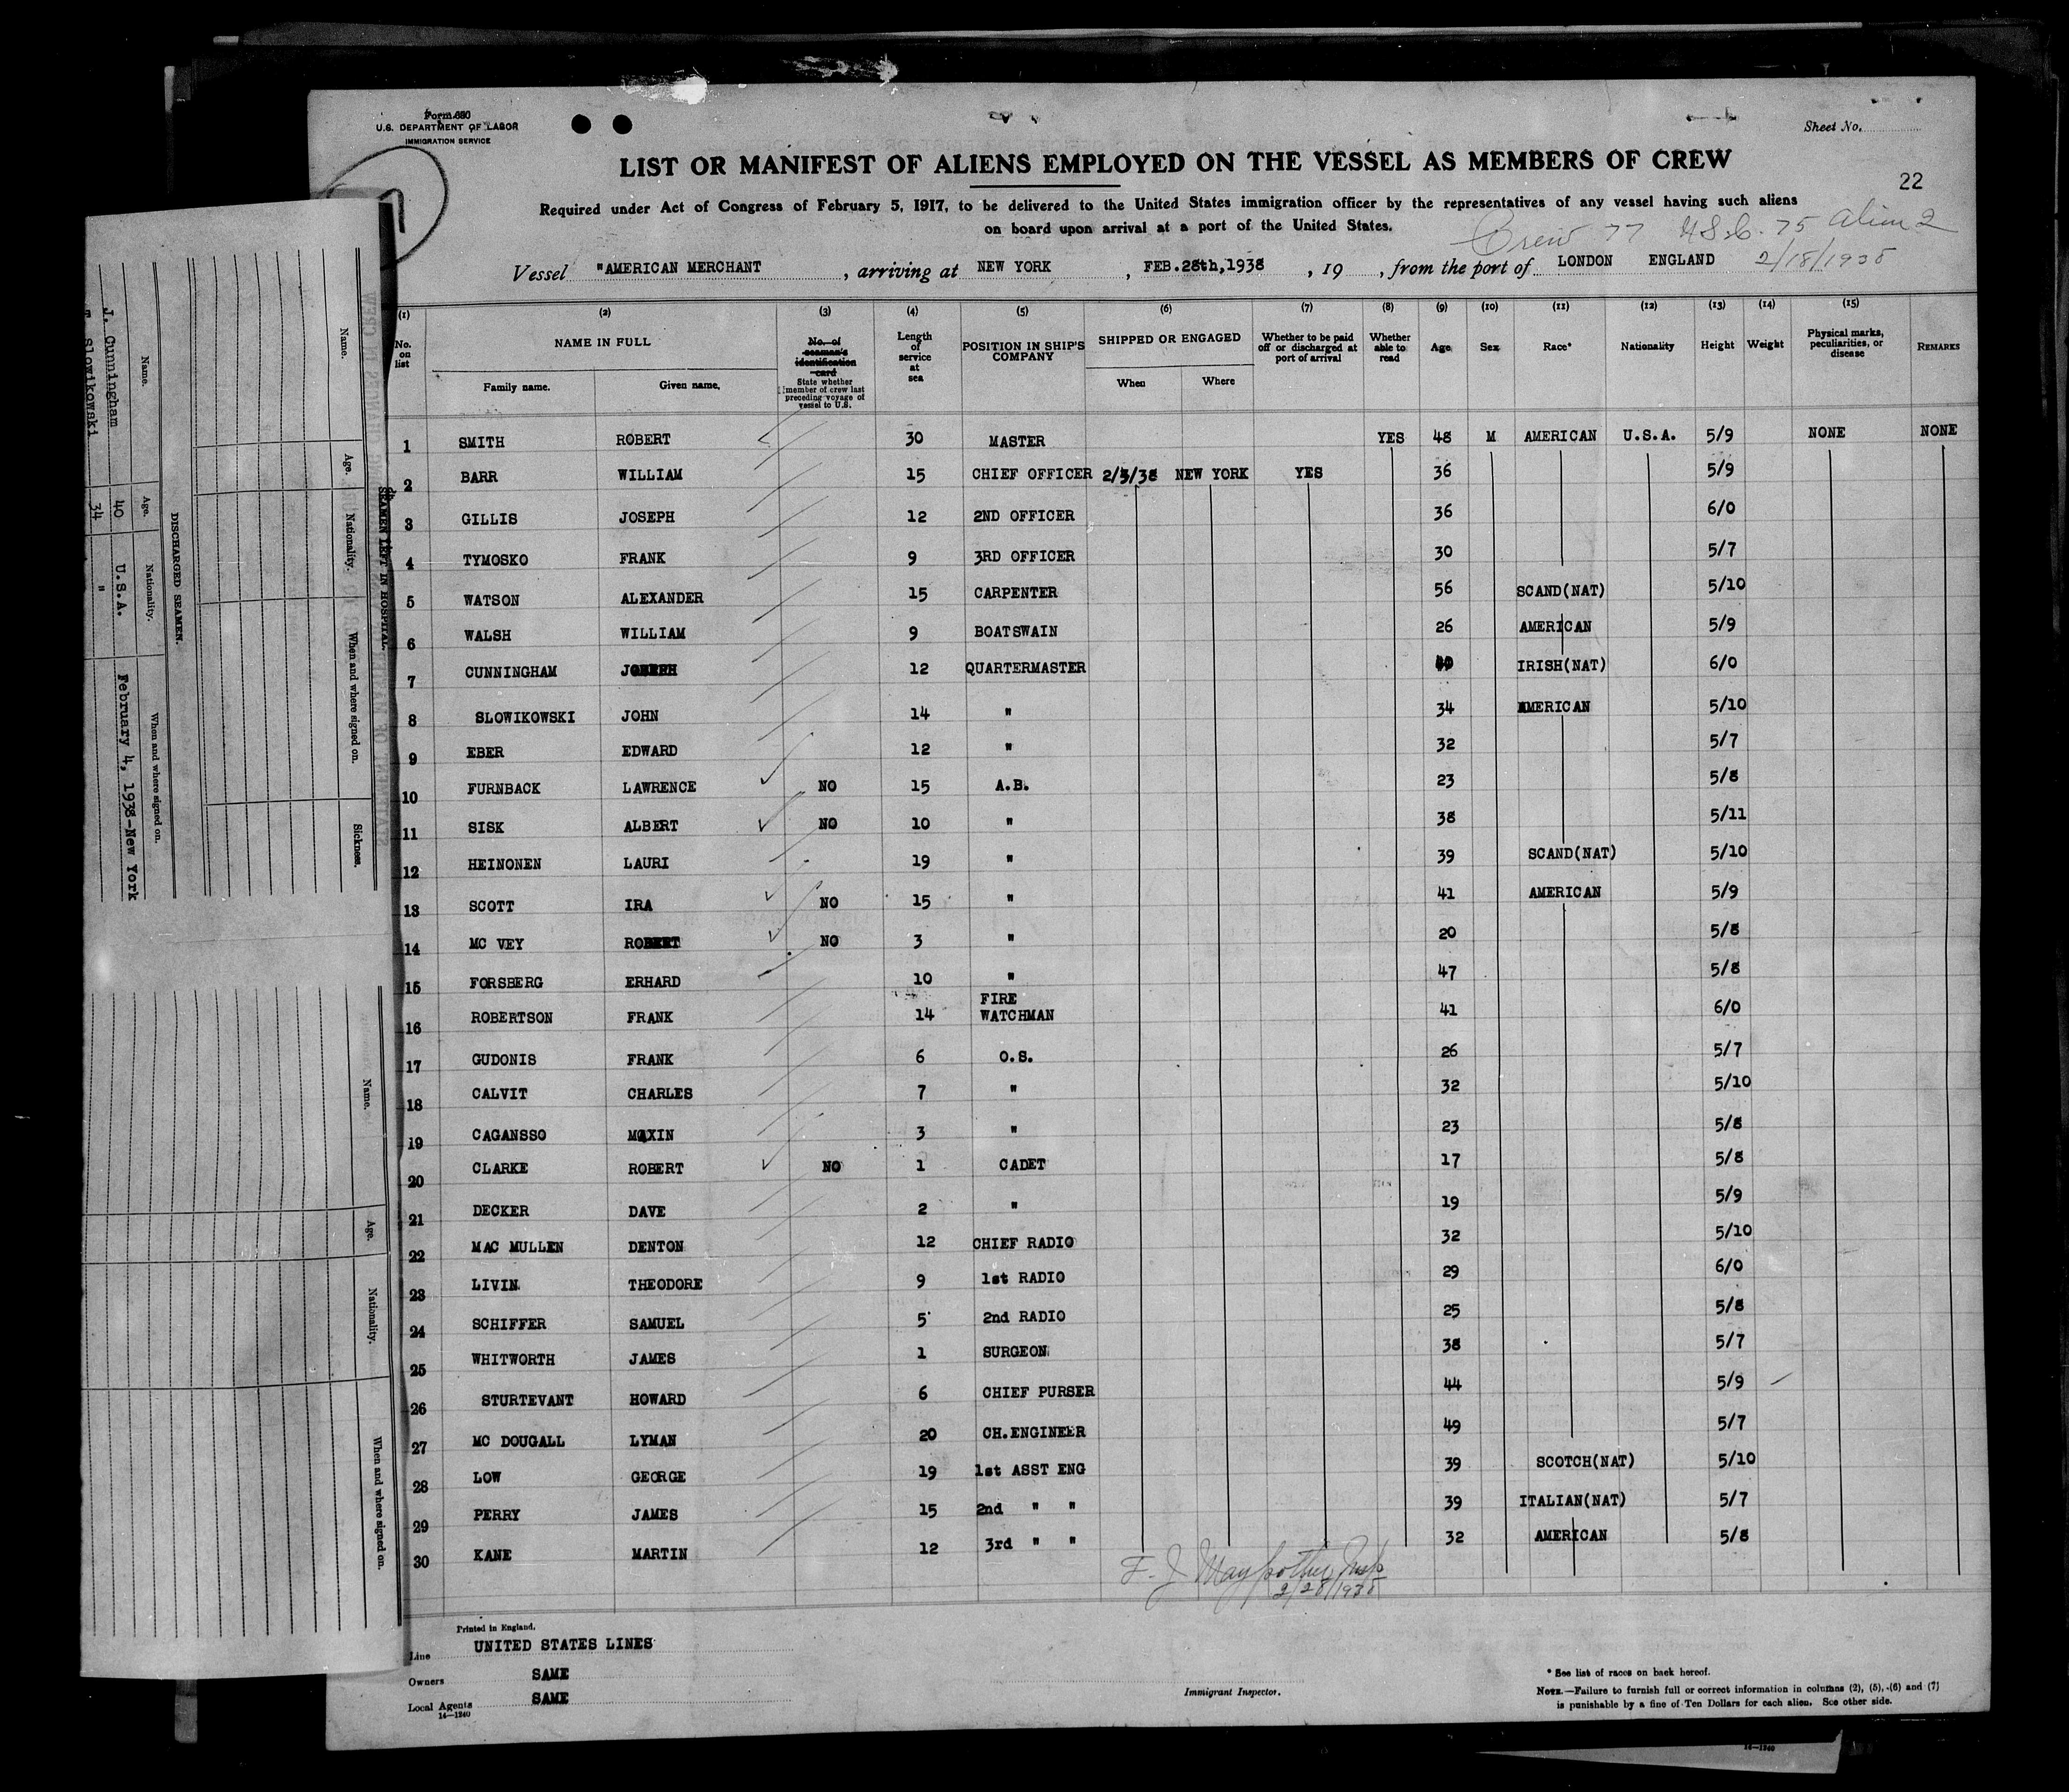 Form 680
U.S. DEPARTMENT OF LABOR
IMMIGRATION SERVICE
Sheet No.
LIST OR MANIFEST OF ALIENS EMPLOYED ON THE VESSEL AS MEMBERS OF CREW
22
Required under Act of Congress of February 5, 1917, to be delivered to the United States immigration officer by the representatives of any vessel having such aliens
on board upon arrival at a port of the United States.
Crew 77 U.S.C. 75 Alien 2
Vessel "AMERICAN MERCHANT , arriving at NEW YORK , FEB.28th,1938 , 19 , from the port of LONDON ENGLAND 2/18/1938
(1) (2) (3) (4) (5) (6) (7) (8) (9) (10) (11) (12) (13) (14) (15)
No. on list NAME IN FULL Family name. Given name. No. of seaman's identification card State whether member of crew last preceding voyage of vessel to U.S. Length of service at sea POSITION IN SHIP'S COMPANY SHIPPED OR ENGAGED When Where Whether to be paid off or discharged at port of arrival Whether able to read Age Sex Race* Nationality Height Weight Physical marks, peculiarities, or disease REMARKS
1 SMITH ROBERT 30 MASTER YES 48 M AMERICAN U.S.A. 5/9 NONE NONE
2 BARR WILLIAM 15 CHIEF OFFICER 2/3/38 NEW YORK YES 36 5/9
3 GILLIS JOSEPH 12 2ND OFFICER 36 6/0
4 TYMOSKO FRANK 9 3RD OFFICER 30 5/7
5 WATSON ALEXANDER 15 CARPENTER 56 SCAND(NAT) 5/10
6 WALSH WILLIAM 9 BOATSWAIN 26 AMERICAN 5/9
7 CUNNINGHAM 12 QUARTERMASTER 40 IRISH(NAT) 6/0
8 SLOWIKOWSKI JOHN 14 " 34 AMERICAN 5/10
9 EBER EDWARD 12 " 32 5/7
10 FURNBACK LAWRENCE NO 15 A.B. 23 5/8
11 SISK ALBERT NO 10 " 38 5/11
12 HEINONEN LAURI 19 " 39 SCAND(NAT) 5/10
13 SCOTT IRA NO 15 " 41 AMERICAN 5/9
14 MC VEY ROBERT NO 3 " 20 5/8
15 FORSBERG ERHARD 10 " 47 5/8
16 ROBERTSON FRANK 14 FIRE WATCHMAN 41 6/0
17 GUDONIS FRANK 6 O.S. 26 5/7
18 CALVIT CHARLES 7 " 32 5/10
19 CAGANSSO MAXIN 3 " 23 5/8
20 CLARKE ROBERT NO 1 CADET 17 5/8
21 DECKER DAVE 2 " 19 5/9
22 MAC MULLEN DENTON 12 CHIEF RADIO 32 5/10
23 LIVIN THEODORE 9 1st RADIO 29 6/0
24 SCHIFFER SAMUEL 5 2nd RADIO 25 5/8
25 WHITWORTH JAMES 1 SURGEON 38 5/7
26 STURTEVANT HOWARD 6 CHIEF PURSER 44 5/9
27 MC DOUGALL LYMAN 20 CH.ENGINEER 49 5/7
28 LOW GEORGE 19 1st ASST ENG 39 SCOTCH(NAT) 5/10
29 PERRY JAMES 15 2nd " " 39 ITALIAN(NAT) 5/7
30 KANE MARTIN 12 3rd " " 32 AMERICAN 5/8
F. J. Insp
2/28/1938
Printed in England.
Line UNITED STATES LINES
Owners SAME
Local Agents SAME
14—1240
Immigrant Inspector.
* See list of races on back hereof.
NOTE.—Failure to furnish full or correct information in columns (2), (5), (6) and (7)
is punishable by a fine of Ten Dollars for each alien. See other side.
14—1240
SEAMEN LEFT IN HOSPITAL.
Name. Age. Nationality. When and where signed on. Sickness.
DISCHARGED SEAMEN.
Name. Age. Nationality. When and where signed on.
J. Cunningham 40 U.S.A. February 4, 1938-New York
Slowikowski 34 "
Name. Age. Nationality. When and where signed on.